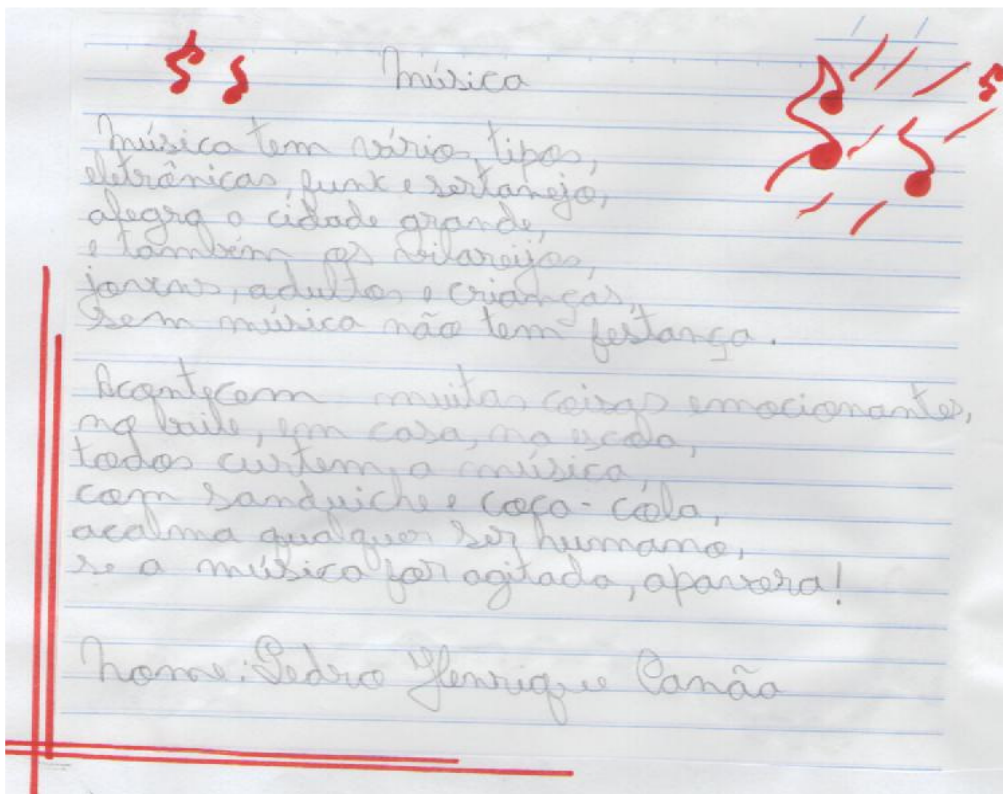 Música
Música tem vários tipos,
eletrônicas, funk e sertanejo,
alegra a cidade grande,
e também os vilareijos,
jovens, adultos e crianças,
sem música não tem festança.
Acontecem muitas coisas emocionantes,
no baile, em casa, na escola,
todos curtem a música,
com sanduiche e coca-cola,
acalma qualquer ser humano,
se a música for agitada, apavora!
Nome: Pedro Henrique Canão